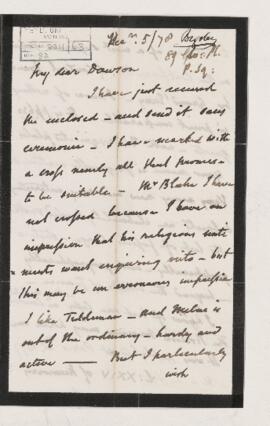 Decr. 5/78
My dear Dawson
I have just received
the enclosed - and send it sans
ceremonie - I have marked with
a cross nearly all that promises
to be suitable - Mr Blake I have
not crossed because I have an
impression that his religious
want enquiring into - but
this may be an erroneous impression
I like - and Milne is
out of the ordinary - hardy and
active — But I particularly
wish